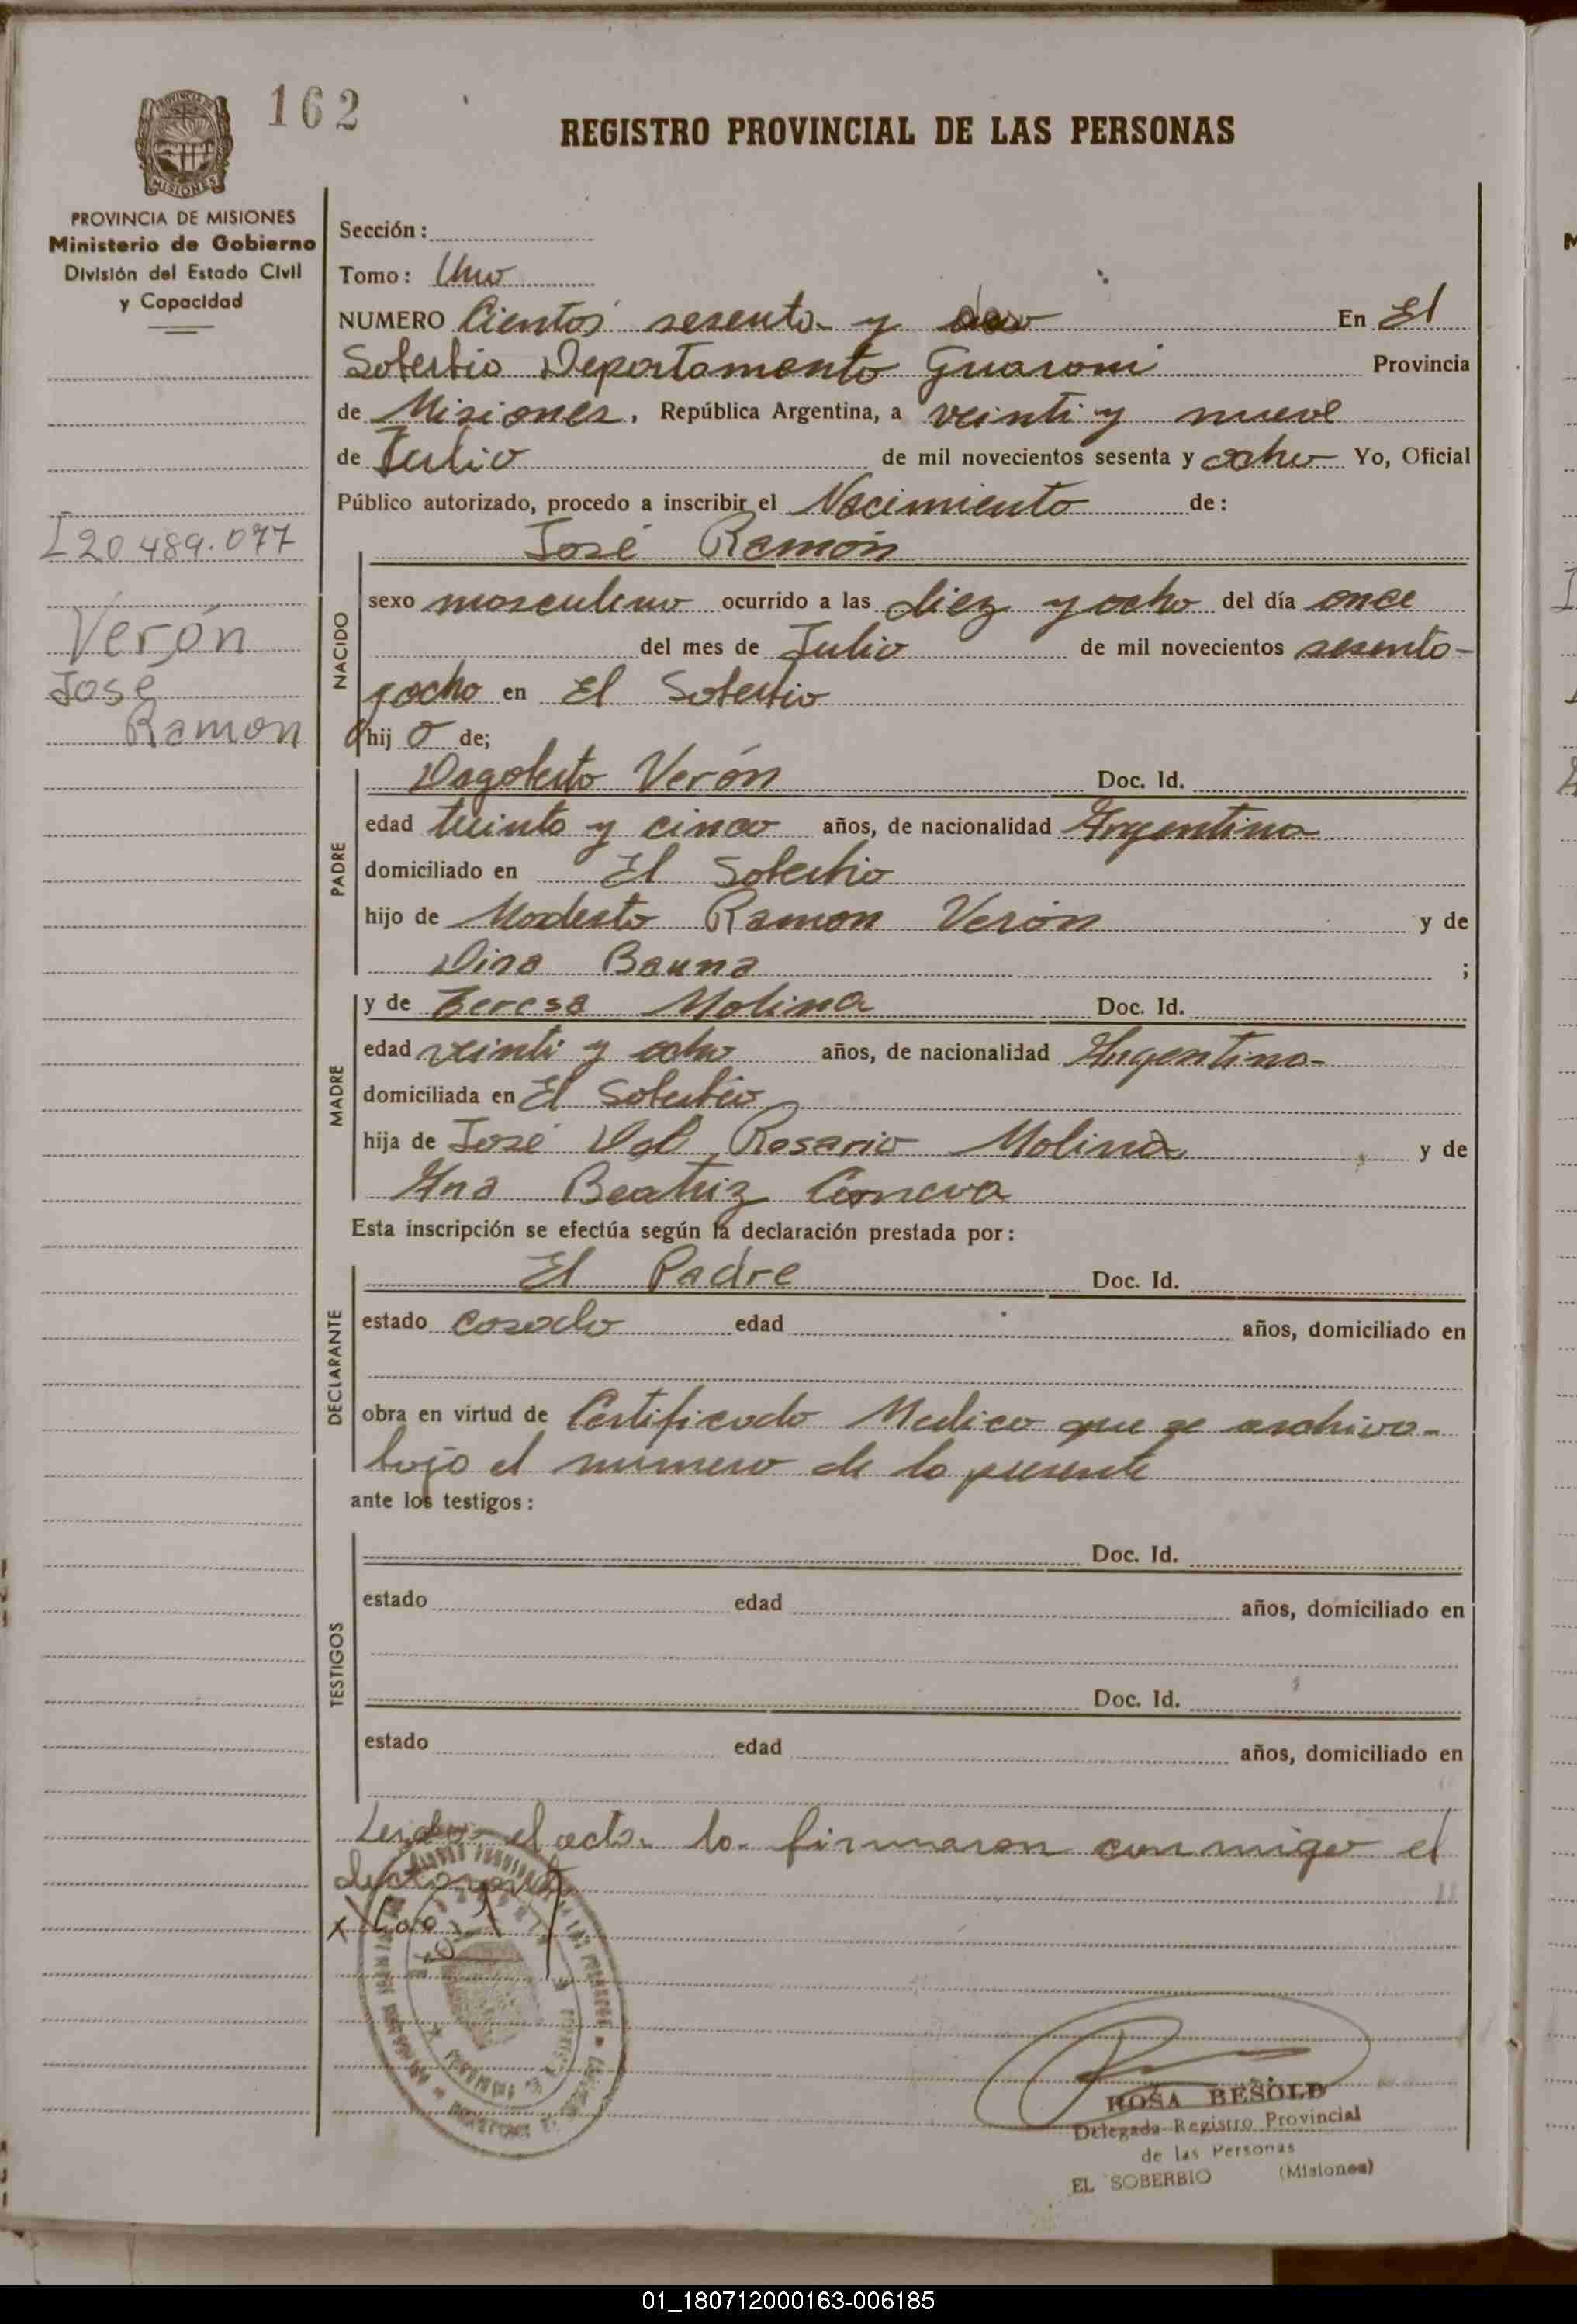 162
REGISTRO PROVINCIAL DE LAS PERSONAS
PROVINCIA DE MISIONES
Ministerio de Gobierno
División del Estado Civil
y Capacidad
I 20.489.077
Verón
José
Ramon
Sección:
Tomo: Uno
NUMERO Cientos sesenta y dos En El
Soberbio Departamento Guarani Provincia
de Misiones, República Argentina, a veinti y nueve
de Julio de mil novecientos sesenta y ocho Yo, Oficial
Público autorizado, procedo a inscribir el Nacimiento de:
José Ramón
NACIDO
sexo masculino ocurrido a las diez y ocho del día once
del mes de Julio de mil novecientos sesenta-
y ocho en El Soberbio
hijo de;
PADRE
Dagoberto Verón Doc. Id.
edad treinta y cinco años, de nacionalidad Argentina
domiciliado en El Soberbio
hijo de Modesto Ramon Verón y de
Dina Bauna ;
MADRE
y de Teresa Molina Doc. Id.
edad veinti y ocho años, de nacionalidad Argentina-
domiciliada en El Soberbio
hija de José Del Rosario Molina y de
Ana Beatriz
Esta inscripción se efectúa según la declaración prestada por:
DECLARANTE
El Padre Doc. Id.
estado casado edad años, domiciliado en
obra en virtud de Certificado Medico que se archiva-
bajo el numero de la presente
ante los testigos:
TESTIGOS
Doc. Id.
estado edad años, domiciliado en
Doc. Id.
estado edad años, domiciliado en
Leida el acta la firmaron conmigo el
ROSA BESOLD
Delegada Registro Provincial
de las Personas
EL SOBERBIO (Misiones)
01_180712000163-006185